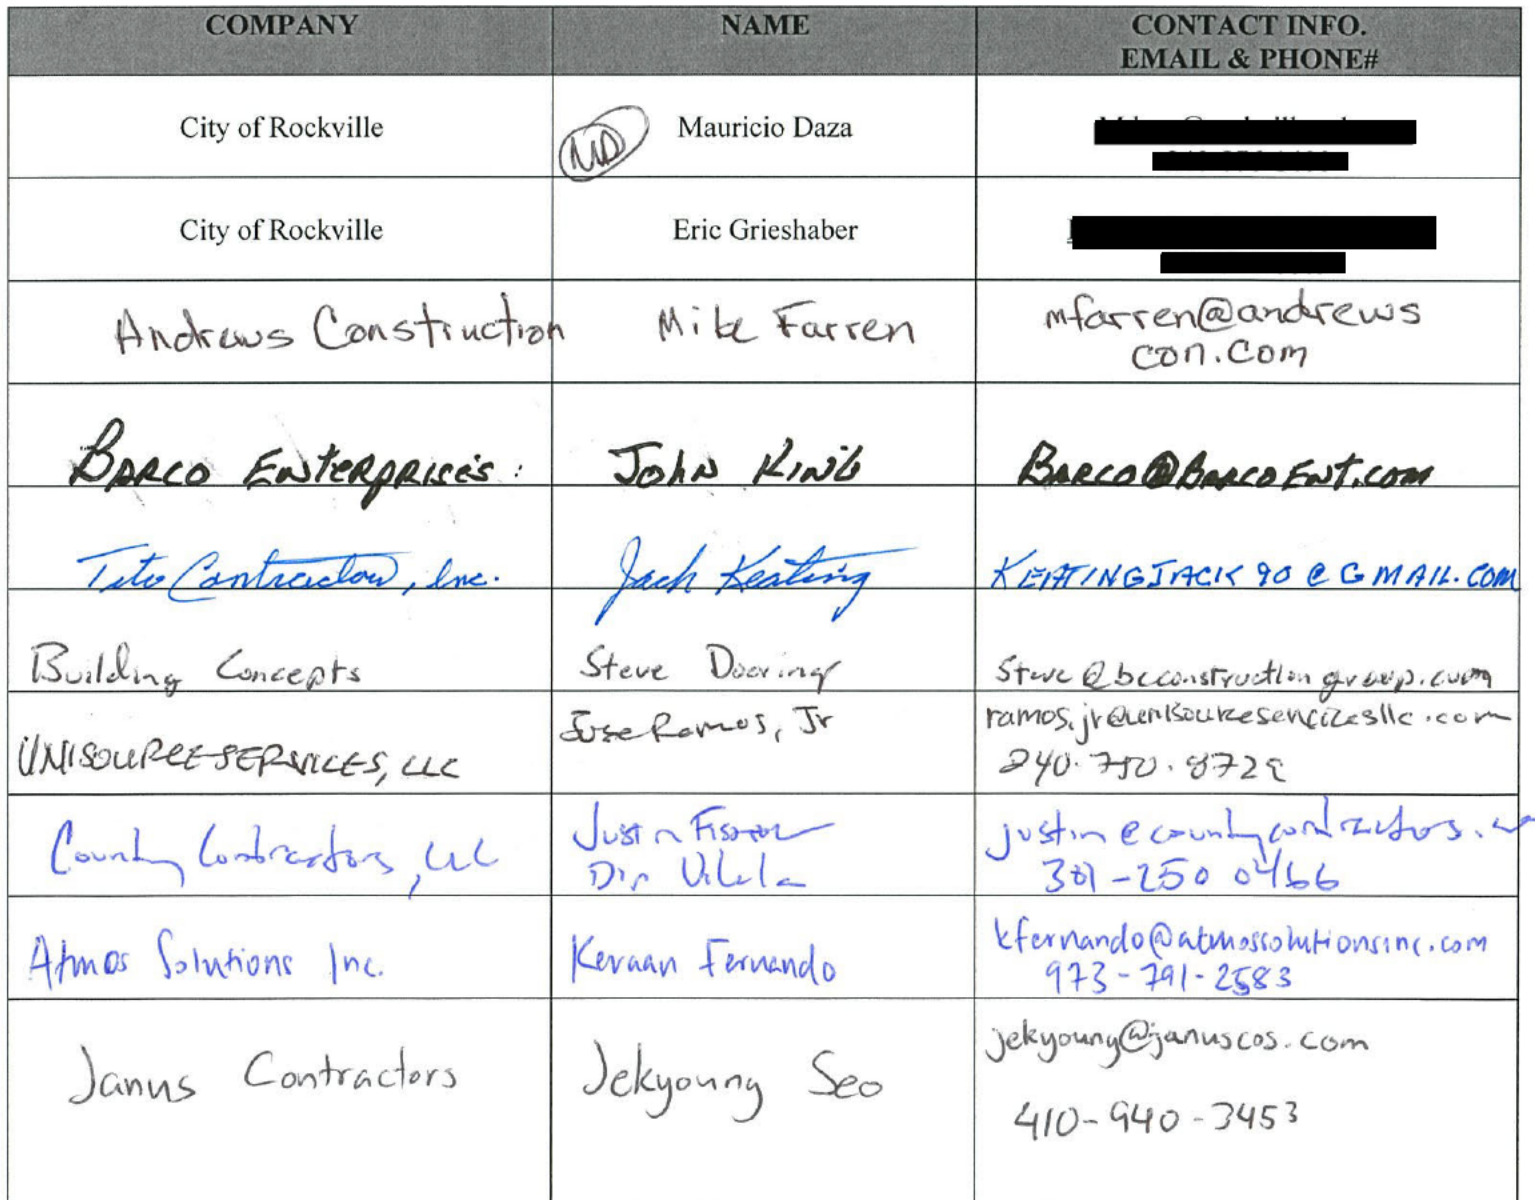 COMPANY NAME CONTACT INFO.
EMAIL & PHONE#
City of Rockville MD Mauricio Daza
City of Rockville Eric Grieshaber
Andrews Construction Mike Farren mfarren@andrews
con.com
BARCO ENTERPRISES: JOHN KING BARCO@BARCOENT.COM
Tito Contractors, Inc. Jack Keating KEATINGJACK90@GMAIL.COM
Building Concepts Steve Doering Steve@bcconstructiongroup.com
UNISOURCE SERVICES, LLC Jose Ramos, Jr ramos.jr@unisourceservicesllc.com
240.750.8729
County Contractors, LLC Justin justin@countycontractors.
301-250 0466
Atmos Solutions Inc. Kevaan Fernando kfernando@atmossolutionsinc.com
973-791-2583
Janus Contractors Jekyoung Seo jekyoung@januscos.com
410-940-3453